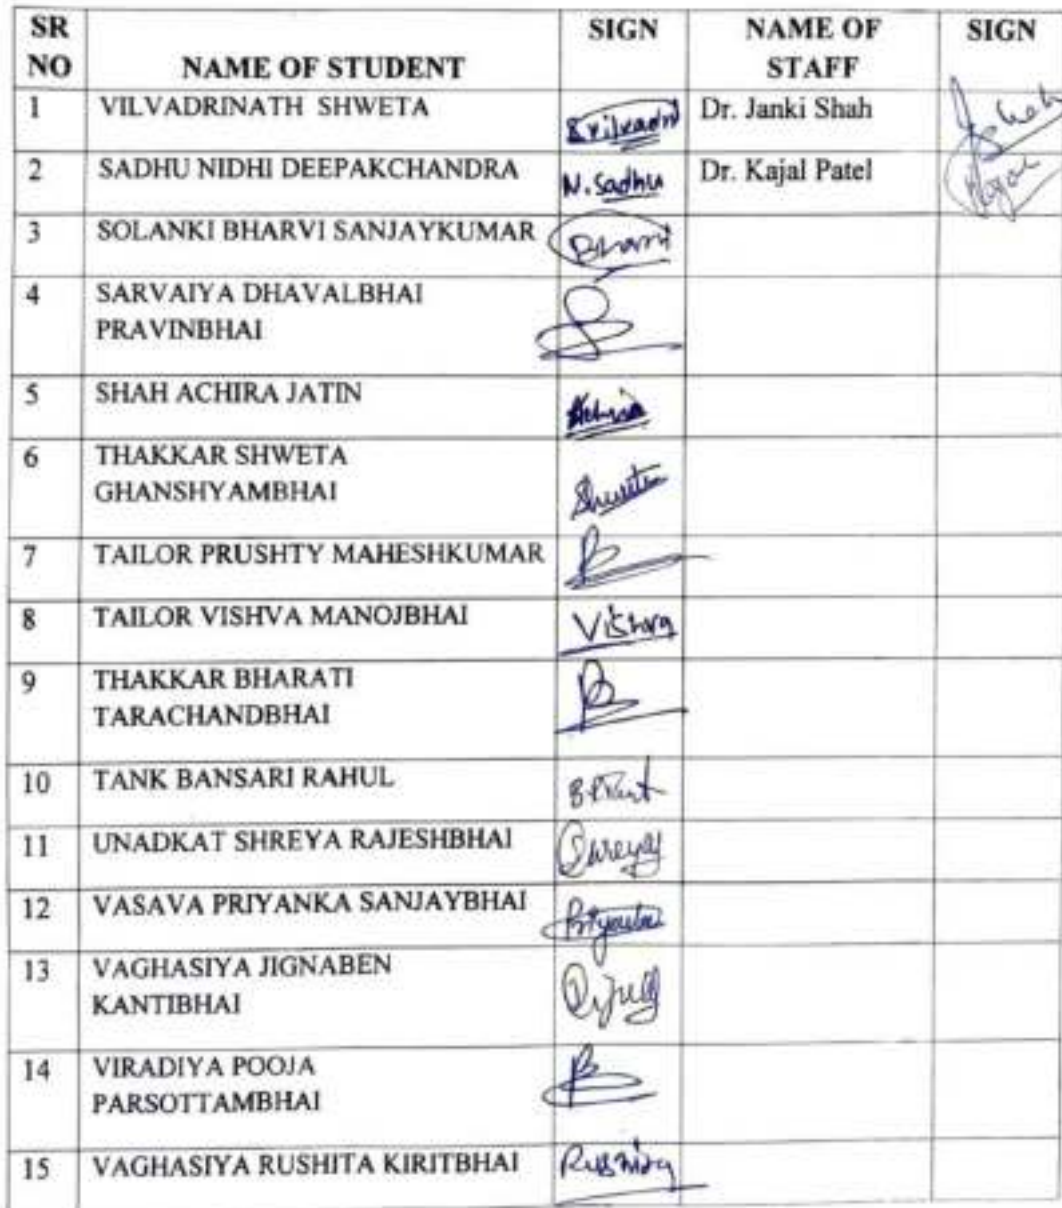 SR NO NAME OF STUDENT SIGN NAME OF STAFF SIGN
1 VILVADRINATH SHWETA Svilvadri Dr. Janki Shah
2 SADHU NIDHI DEEPAKCHANDRA N. Sadhu Dr. Kajal Patel
3 SOLANKI BHARVI SANJAYKUMAR
4 SARVAIYA DHAVALBHAI
PRAVINBHAI
5 SHAH ACHIRA JATIN
6 THAKKAR SHWETA
GHANSHYAMBHAI Shweta
7 TAILOR PRUSHTY MAHESHKUMAR
8 TAILOR VISHVA MANOJBHAI Vishva
9 THAKKAR BHARATI
TARACHANDBHAI
10 TANK BANSARI RAHUL
11 UNADKAT SHREYA RAJESHBHAI Shreya
12 VASAVA PRIYANKA SANJAYBHAI Priyanka
13 VAGHASIYA JIGNABEN
KANTIBHAI
14 VIRADIYA POOJA
PARSOTTAMBHAI
15 VAGHASIYA RUSHITA KIRITBHAI Rushita